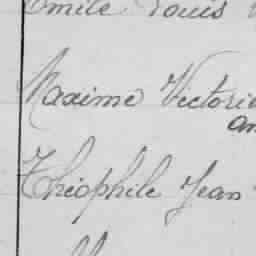 Emile Louis
Maxime Victorie
an
Théophile Jean